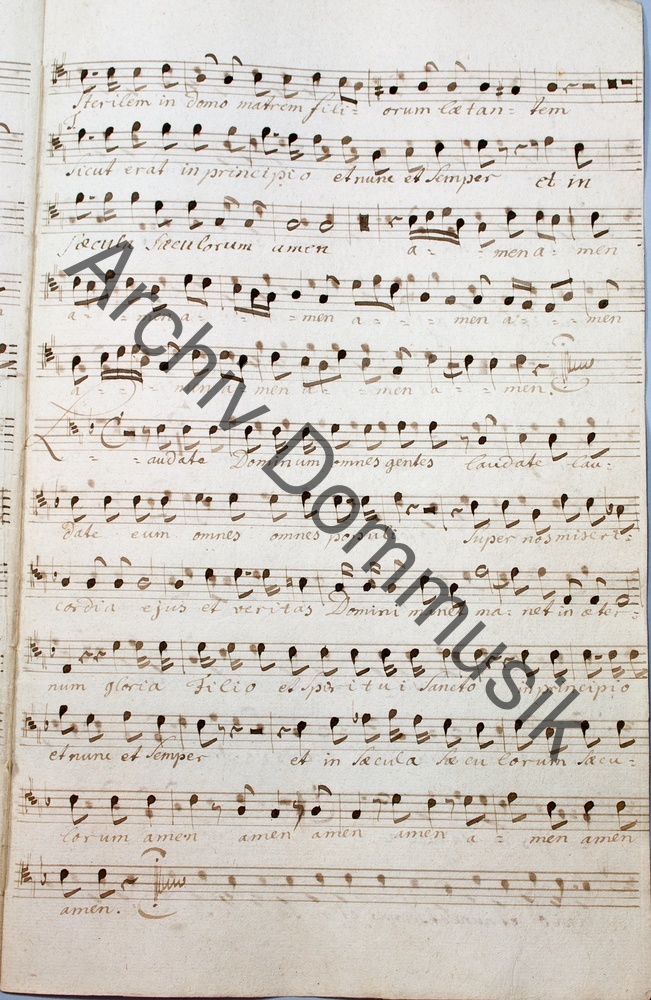 sterilem in domo matrem fili- orum lætan- tem
sicut erat in principio et nunc et semper et in
sæcula sæculorum amen a- - men a- men
a- - men a- - - men a- - - men a- - men
a- - men a- men a- - men a- - men.
Laudate Dominum omnes gentes laudate lau-
date eum omnes omnes populi super nos miseri-
cordia ejus et veritas Domini manet ma- net in æter-
num gloria Filio et spiritui sancto in principio
et nunc et semper et in sæcula sæculorum sæcu-
lorum amen amen amen amen a- men amen
amen.
Archiv Dommusik